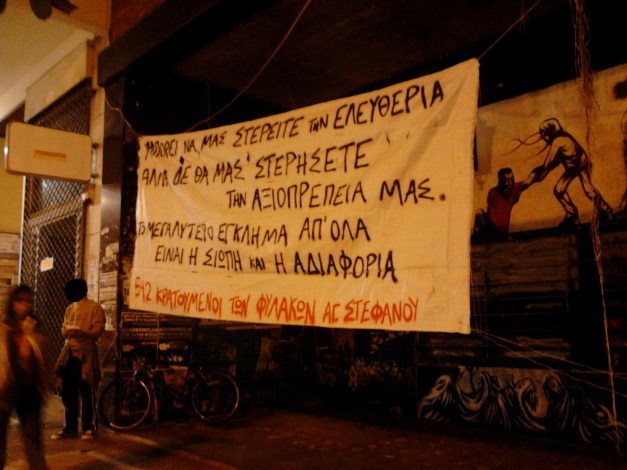 ΜΠΟΡΕΙ ΝΑ ΜΑΣ ΣΤΕΡΕΙΤΕ ΤΗΝ ΕΛΕΥΘΕΡΙΑ
ΑΛΛΑ ΔΕ ΘΑ ΜΑΣ ΣΤΕΡΗΣΕΤΕ
ΤΗΝ ΑΞΙΟΠΡΕΠΕΙΑ ΜΑΣ.
ΤΟ ΜΕΓΑΛΥΤΕΡΟ ΕΓΚΛΗΜΑ ΑΠ'ΟΛΑ
ΕΙΝΑΙ Η ΣΙΩΠΗ ΚΑΙ Η ΑΔΙΑΦΟΡΙΑ
542 ΚΡΑΤΟΥΜΕΝΟΙ ΤΩΝ ΦΥΛΑΚΩΝ ΑΓ ΣΤΕΦΑΝΟΥ